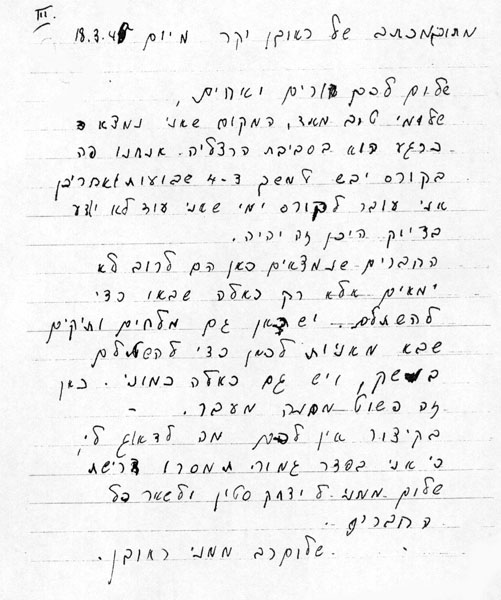 III.
מתוך מכתב של ראובן יקר מיום 18.3.48
שלום לכם הורים ואחים,
שלומי טוב מאד, המקום שאני נמצא בו
ברגע הוא בסביבת הרצליה. אנחנו פה
בקורס יבש למשך 3-4 שבועות ואחריכן
אני עובר לקורס ימי שאני עוד לא יודע
בדיוק היכן זה יהיה.
החברים שנמצאים כאן הם לרוב לא
ימאים אלא רק כאלה שבאו כדי
להשתלם. יש כאן גם מלחים ותיקים
שבאו מאניות לכאן כדי להשתלם
בנשק, ויש גם כאלה כמוני. כאן
זה פשוט מחנה מעבר.
בקיצור אין לכם מה לדאוג לי,
כי אני בסדר גמור תמסרו דרישת
שלום ממני ל יצחק סטין ולשאר כל
החברים.
שלום רב ממני ראובן.